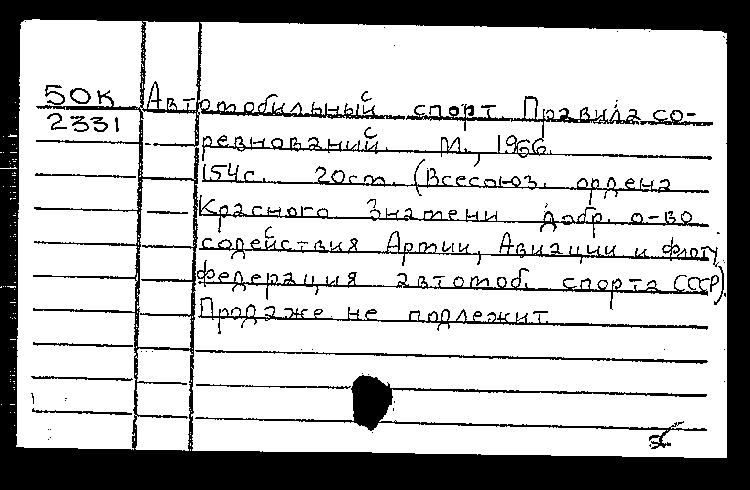 50К Автомобильный спорт. Правила со-
2331 ревнований. М., 1966.
154с. 20см. (Всесоюз. ордена
Красного Знамени добр. о-во
содействия Армии, Авиации и флоту
федерация автомоб. спорта СССР).
Продаже не подлежит